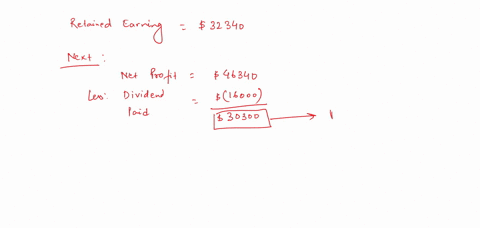 Retained Earning = $ 32340
Next :
Net Profit = $46340
Less: Dividend Paid = $(16000)
$ 30300 →